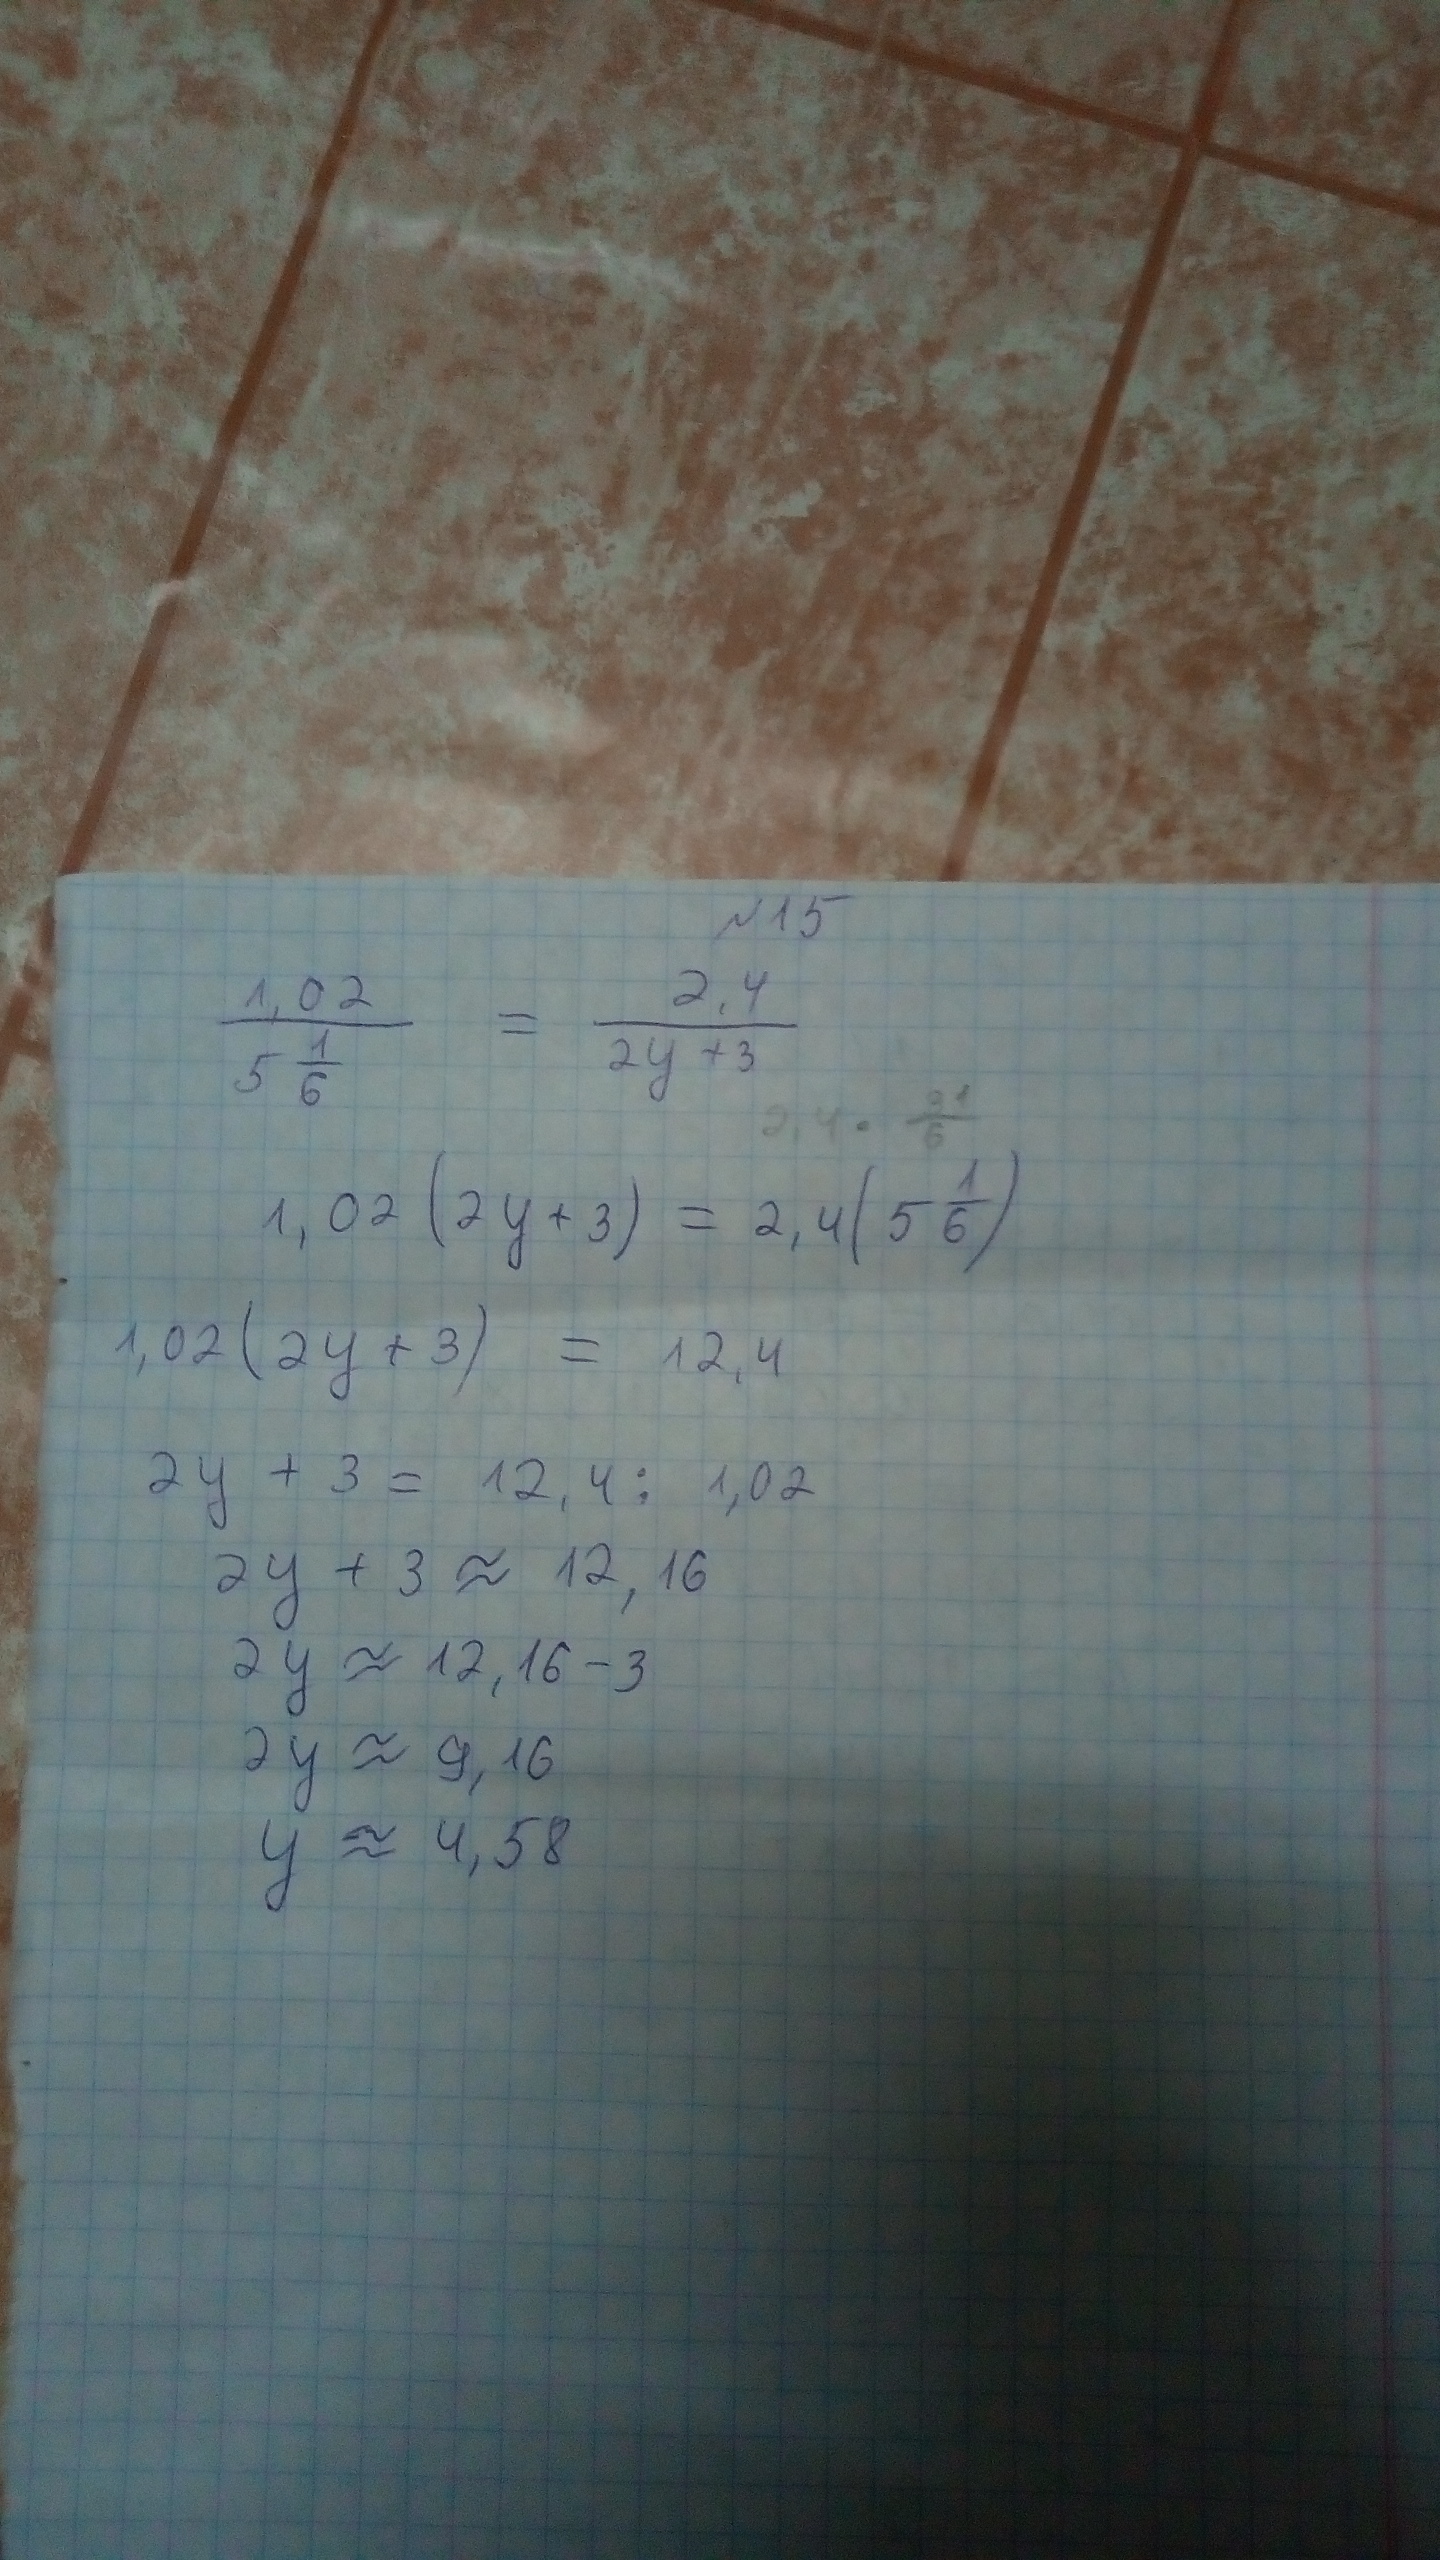 №15
1,02 / 5 1/6 = 2,4 / 2y + 3
2,4 · 31/6
1,02 (2y + 3) = 2,4 (5 1/6)
1,02 (2y + 3) = 12,4
2y + 3 = 12,4 : 1,02
2y + 3 ≈ 12,16
2y ≈ 12,16 - 3
2y ≈ 9,16
y ≈ 4,58